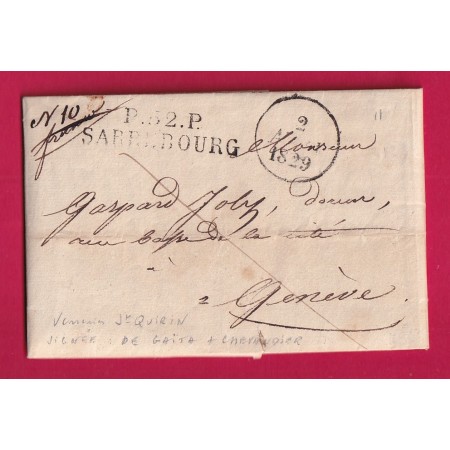 N. 10
franco
P.52.P.
SARREBOURG
2
A
1829
Monsieur
Gaspard Joly, doreur,
rue basse de la cité
à
à Genève.
Verrerie St QUIRIN
SIGNÉE : DE GAÏTA + CHEVANDIER